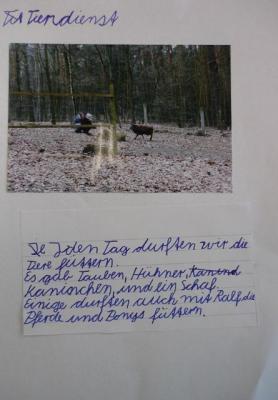 Tot Tierdienst
Je Jden Tag durften wir die
Tiere füttern.
Es gab Tauben, Hühner, Kanind
Kaninchen, und ein Schaf.
Einige durften auch mit Ralf die
Pferde und Ponys füttern.